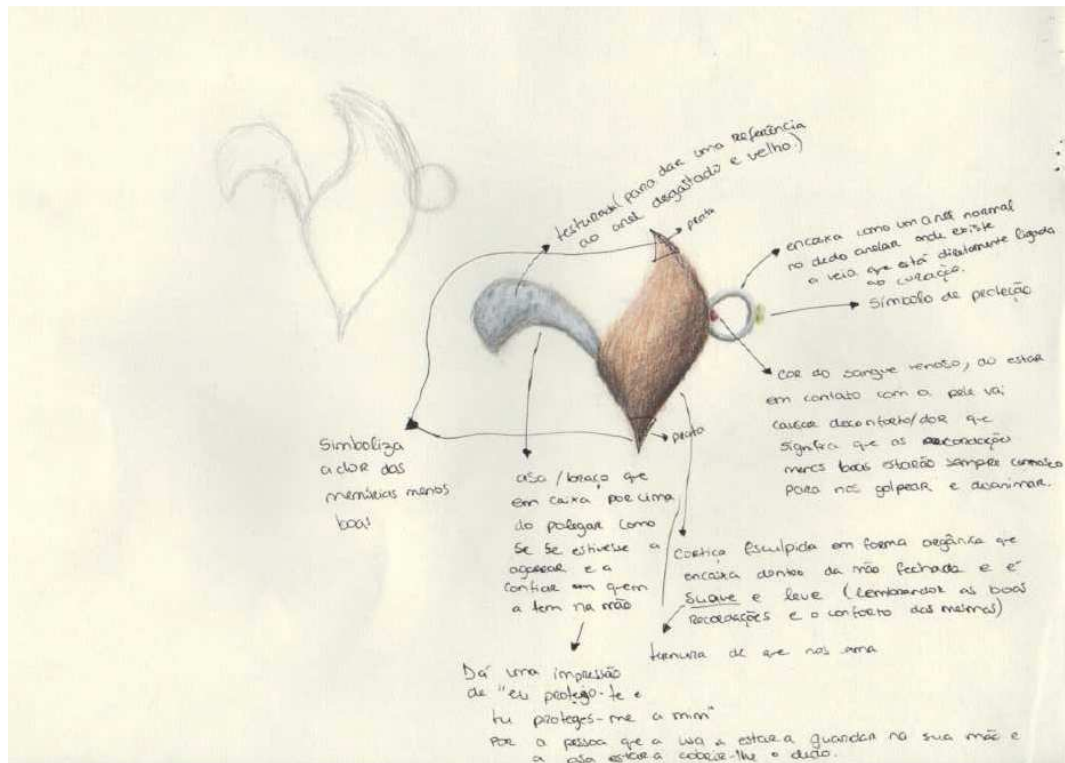 testurada (para dar uma referência
ao anel desgastado e velho.)
prata
encaixa como um anel normal
no dedo anelar onde existe
a veia que está diretamente ligada
ao curação.
símbolo de proteção
cor do sangue venoso, ao estar
em contato com a pele vai
causar desconforto/dor que
signfica que as recordações
menos boas estarão sempre connosco
para nos golpear e desanimar.
prata
Simboliza
a dor das
memórias menos
boas
asa / braço que
em caixa por cima
do polegar como
se se estivesse a
agarrar e a
confiar em quem
a tem na mão
cortiça esculpida em forma orgânica que
encaixa dentro da mão fechada e é
suave e leve (lembrando as boas
recordações e o conforto das mesmas)
ternura de que nos ama
Dá uma impressão
de "eu protejo-te e
tu proteges-me a mim"
por a pessoa que a usa a estara guardar na sua mão e
a asa estará cobrir-lhe o dedo.